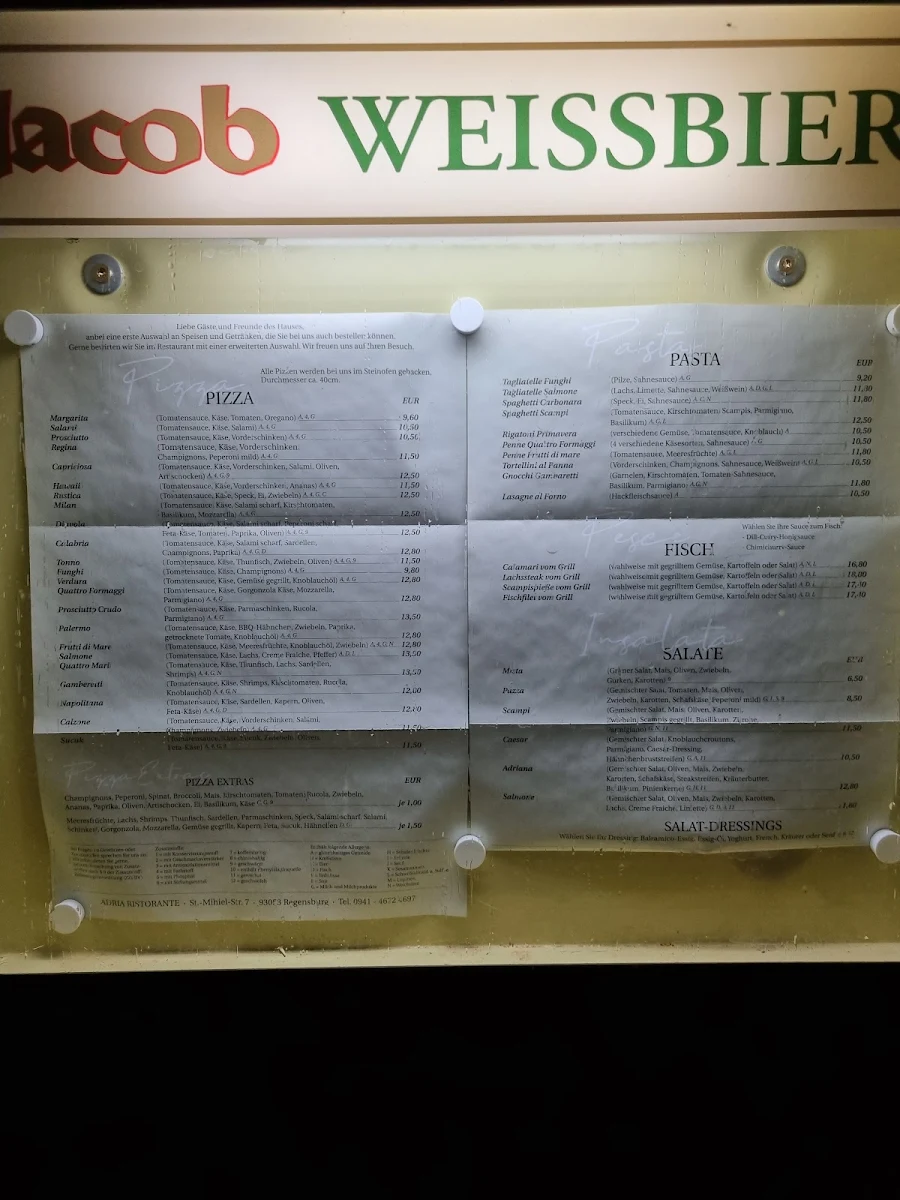 Jacob WEISSBIER
Liebe Gäste und Freunde des Hauses,
anbei eine erste Auswahl an Speisen und Getränken, die Sie bei uns auch bestellen können.
Gerne bewirten wir Sie im Restaurant mit einer erweiterten Auswahl. Wir freuen uns auf Ihren Besuch.
Pizza
Alle Pizzen werden bei uns im Steinofen gebacken.
Durchmesser ca. 40cm.
PIZZA EUR
Margarita (Tomatensauce, Käse, Tomaten, Oregano) 9,60
Salami (Tomatensauce, Käse, Salami) 10,50
Prosciutto (Tomatensauce, Käse, Vorderschinken) 10,50
Regina (Tomatensauce, Käse, Vorderschinken,
Champignons, Peperoni mild) 11,50
Capriciosa (Tomatensauce, Käse, Vorderschinken, Salami, Oliven,
Artischocken) 12,50
Hawaii (Tomatensauce, Käse, Vorderschinken, Ananas) 11,50
Rustica (Tomatensauce, Käse, Speck, Ei, Zwiebeln) 12,50
Milan (Tomatensauce, Käse, Salami scharf, Kirschtomaten,
Basilikum, Mozzarella) 12,50
Diavola (Tomatensauce, Käse, Salami scharf, Peperoni scharf
Feta-Käse, Tomaten, Paprika, Oliven) 12,50
Calabria (Tomatensauce, Käse, Salami scharf, Sardellen,
Champignons, Paprika) 12,80
Tonno (Tomatensauce, Käse, Thunfisch, Zwiebeln, Oliven) 11,50
Funghi (Tomatensauce, Käse, Champignons) 9,80
Verdura (Tomatensauce, Käse, Gemüse gegrillt, Knoblauchöl) 12,80
Quattro Formaggi (Tomatensauce, Käse, Gorgonzola Käse, Mozzarella,
Parmigiano) 12,80
Prosciutto Crudo (Tomatensauce, Käse, Parmaschinken, Rucola,
Parmigiano) 13,50
Palermo (Tomatensauce, Käse, BBQ-Hähnchen, Zwiebeln, Paprika,
getrocknete Tomate, Knoblauchöl) 12,80
Frutti di Mare (Tomatensauce, Käse, Meeresfrüchte, Knoblauch, Zwiebeln) 12,80
Salmone (Tomatensauce, Käse, Lachs, Creme Fraiche, Pfeffer) 13,50
Quattro Mari (Tomatensauce, Käse, Thunfisch, Lachs, Sardellen,
Shrimps) 13,50
Gambereti (Tomatensauce, Käse, Shrimps, Kirschtomaten, Rucola,
Knoblauchöl) 12,00
Napolitana (Tomatensauce, Käse, Sardellen, Kapern, Oliven,
Feta-Käse)
Calzone (Tomatensauce, Käse, Vorderschinken, Salami,
Champignons, Zwiebeln, Oliven)
Sucuk (Tomatensauce, Käse, Sucuk, Zwiebeln, Oliven,
Feta-Käse) 11,50
Pizza Extras
PIZZA EXTRAS EUR
Champignons, Peperoni, Spinat, Broccoli, Mais, Kirschtomaten, Tomaten, Rucola, Zwiebeln,
Ananas, Paprika, Oliven, Artischocken, Ei, Basilikum, Käse je 1,00
Meeresfrüchte, Lachs, Shrimps, Thunfisch, Sardellen, Parmaschinken, Speck, Salami scharf, Salami,
Schinken, Gorgonzola, Mozzarella, Gemüse gegrillt, Kapern, Feta, Sucuk, Hähnchen je 1,50
ADRIA RISTORANTE · St.-Mihiel-Str. 7 · 93053 Regensburg · Tel. 0941 - 4672 4697
Pasta
PASTA EUR
Tagliatelle Funghi (Pilze, Sahnesauce) 9,20
Tagliatelle Salmone (Lachs, Limette, Sahnesauce, Weißwein)
Spaghetti Carbonara (Speck, Ei, Sahnesauce) 11,80
Spaghetti Scampi (Tomatensauce, Kirschtomaten, Scampis, Parmigiano,
Basilikum) 12,50
Rigatoni Primavera (verschiedene Gemüse, Tomatensauce, Knoblauch) 10,50
Penne Quattro Formaggi (4 verschiedene Käsesorten, Sahnesauce) 10,50
Penne Frutti di mare (Tomatensauce, Meeresfrüchte) 11,80
Tortellini al Panna (Vorderschinken, Champignons, Sahnesauce, Weißwein) 10,50
Gnocchi Gambaretti (Garnelen, Kirschtomaten, Tomaten-Sahnesauce,
Basilikum, Parmigiano) 11,80
Lasagne al Forno (Hackfleischsauce) 10,50
Pesce
Wählen Sie Ihre Sauce zum Fisch:
FISCH · Dill-Curry-Honigsauce
· Chimichurri-Sauce
Calamari vom Grill (wahlweise mit gegrilltem Gemüse, Kartoffeln oder Salat) 16,80
Lachssteak vom Grill (wahlweise mit gegrilltem Gemüse, Kartoffeln oder Salat) 18,80
Scampispieße vom Grill (wahlweise mit gegrilltem Gemüse, Kartoffeln oder Salat)
Fischfilet vom Grill (wahlweise mit gegrilltem Gemüse, Kartoffeln oder Salat)
Insalata
SALATE EUR
Mista (Grüner Salat, Mais, Oliven, Zwiebeln,
Gurken, Karotten) 6,50
Pazza (Gemischter Salat, Tomaten, Mais, Oliven,
Zwiebeln, Karotten, Schafskäse, Peperoni mild) 8,50
Scampi (Gemischter Salat, Mais, Oliven, Karotten,
Zwiebeln, Scampis gegrillt, Basilikum, Zitrone,
Parmigiano) 11,50
Caesar (Gemischter Salat, Knoblauchcroutons,
Parmigiano, Caesar-Dressing,
Hähnchenbruststreifen) 10,50
Adriana (Gemischter Salat, Oliven, Mais, Zwiebeln,
Karotten, Schafskäse, Steakstreifen, Kräuterbutter,
Basilikum, Pinienkerne) 12,80
Salmone (Gemischter Salat, Oliven, Mais, Zwiebeln, Karotten,
Lachs, Creme Fraiche, Limette)
SALAT-DRESSINGS
Wählen Sie Ihr Dressing: Balsamico-Essig, Essig-Öl, Yoghurt, French, Kräuter oder Senf